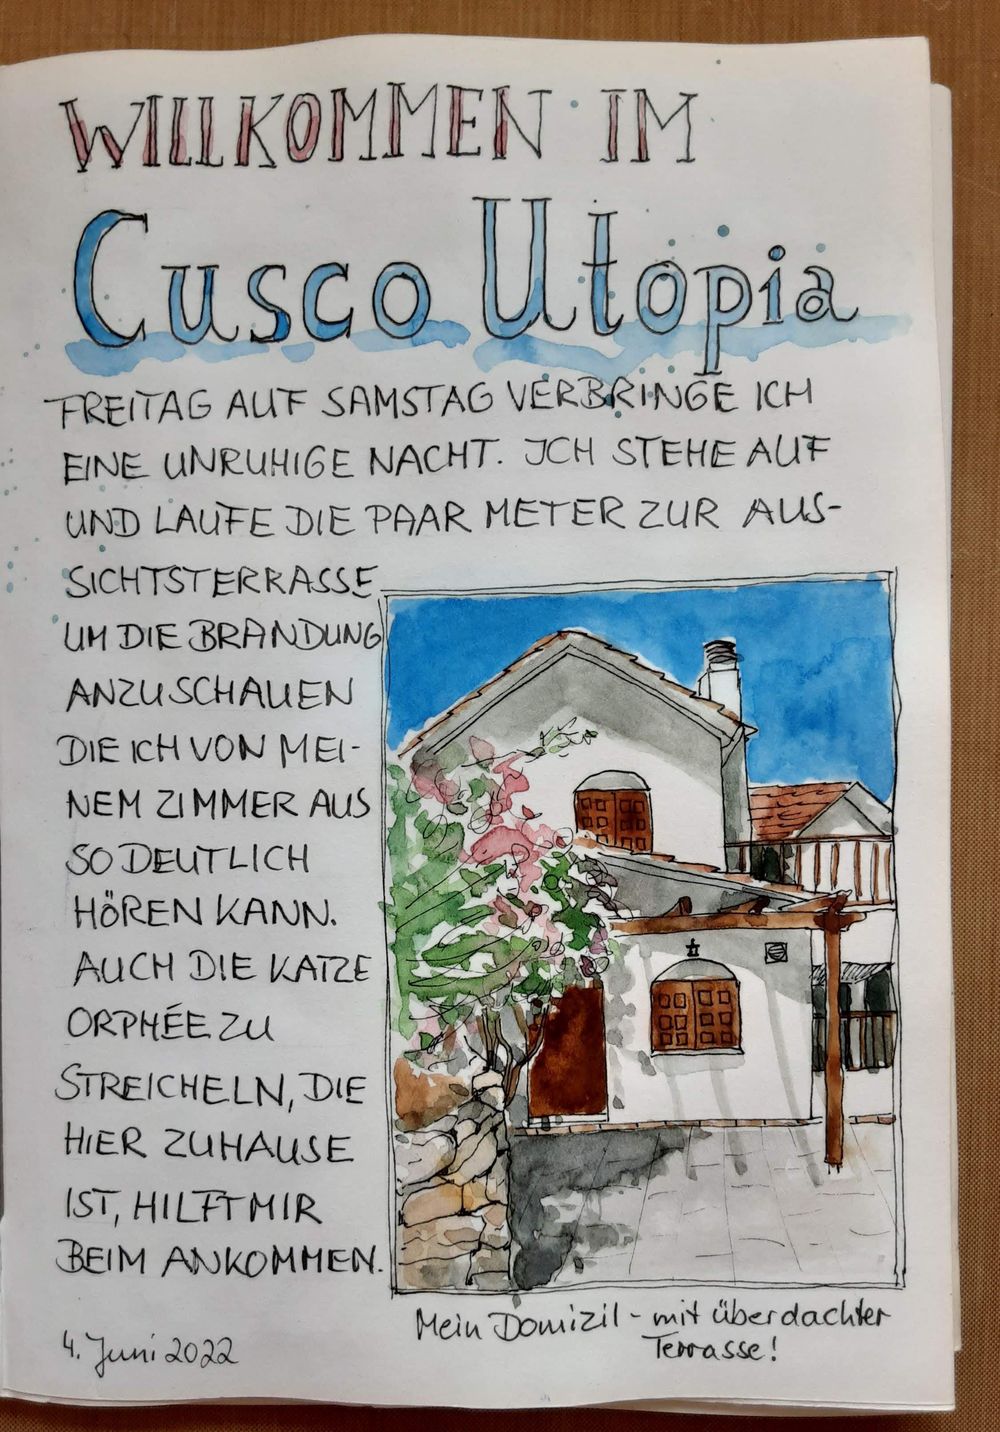 WILLKOMMEN IM
Cusco Utopia
FREITAG AUF SAMSTAG VERBRINGE ICH
EINE UNRUHIGE NACHT. ICH STEHE AUF
UND LAUFE DIE PAAR METER ZUR AUS-
SICHTSTERRASSE
UM DIE BRANDUNG
ANZUSCHAUEN
DIE ICH VON MEI-
NEM ZIMMER AUS
SO DEUTLICH
HÖREN KANN.
AUCH DIE KATZE
ORPHÉE ZU
STREICHELN, DIE
HIER ZUHAUSE
IST, HILFT MIR
BEIM ANKOMMEN.
Mein Domizil - mit überdachter
Terrasse!
4. Juni 2022